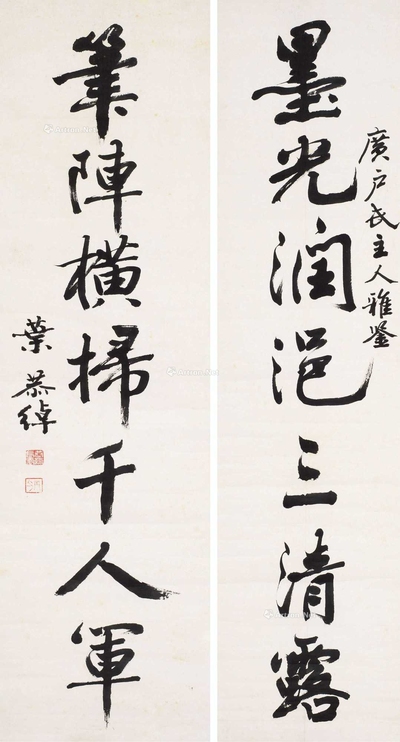 廣户氏主人雅鑒
墨光潤浥三清露
筆陣橫掃千人軍
葉恭綽